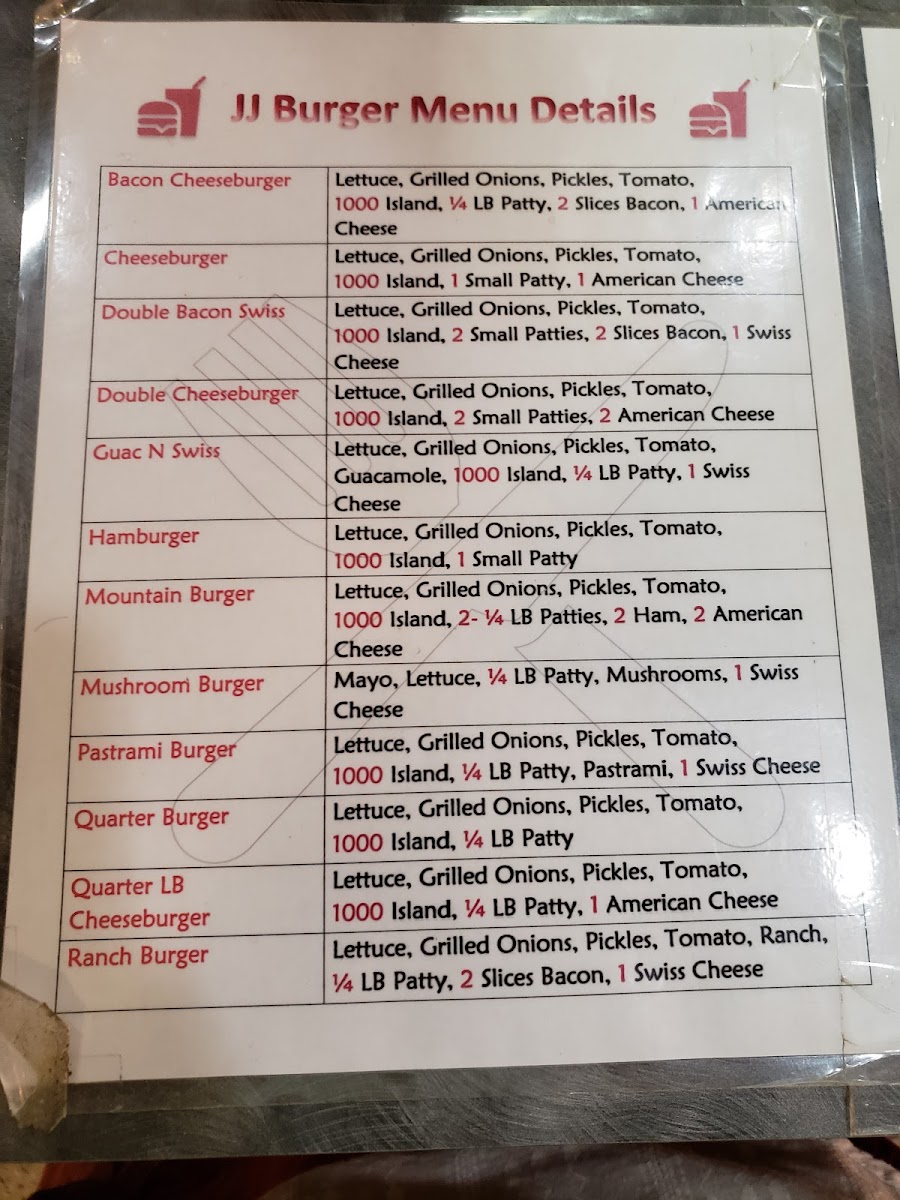 JJ Burger Menu Details
Bacon Cheeseburger
Lettuce, Grilled Onions, Pickles, Tomato,
1000 Island, ¼ LB Patty, 2 Slices Bacon, 1 American
Cheese
Cheeseburger
Lettuce, Grilled Onions, Pickles, Tomato,
1000 Island, 1 Small Patty, 1 American Cheese
Double Bacon Swiss
Lettuce, Grilled Onions, Pickles, Tomato,
1000 Island, 2 Small Patties, 2 Slices Bacon, 1 Swiss
Cheese
Double Cheeseburger
Lettuce, Grilled Onions, Pickles, Tomato,
1000 Island, 2 Small Patties, 2 American Cheese
Guac N Swiss
Lettuce, Grilled Onions, Pickles, Tomato,
Guacamole, 1000 Island, ¼ LB Patty, 1 Swiss
Cheese
Hamburger
Lettuce, Grilled Onions, Pickles, Tomato,
1000 Island, 1 Small Patty
Mountain Burger
Lettuce, Grilled Onions, Pickles, Tomato,
1000 Island, 2- ¼ LB Patties, 2 Ham, 2 American
Cheese
Mushroom Burger
Mayo, Lettuce, ¼ LB Patty, Mushrooms, 1 Swiss
Cheese
Pastrami Burger
Lettuce, Grilled Onions, Pickles, Tomato,
1000 Island, ¼ LB Patty, Pastrami, 1 Swiss Cheese
Quarter Burger
Lettuce, Grilled Onions, Pickles, Tomato,
1000 Island, ¼ LB Patty
Quarter LB
Cheeseburger
Lettuce, Grilled Onions, Pickles, Tomato,
1000 Island, ¼ LB Patty, 1 American Cheese
Ranch Burger
Lettuce, Grilled Onions, Pickles, Tomato, Ranch,
¼ LB Patty, 2 Slices Bacon, 1 Swiss Cheese